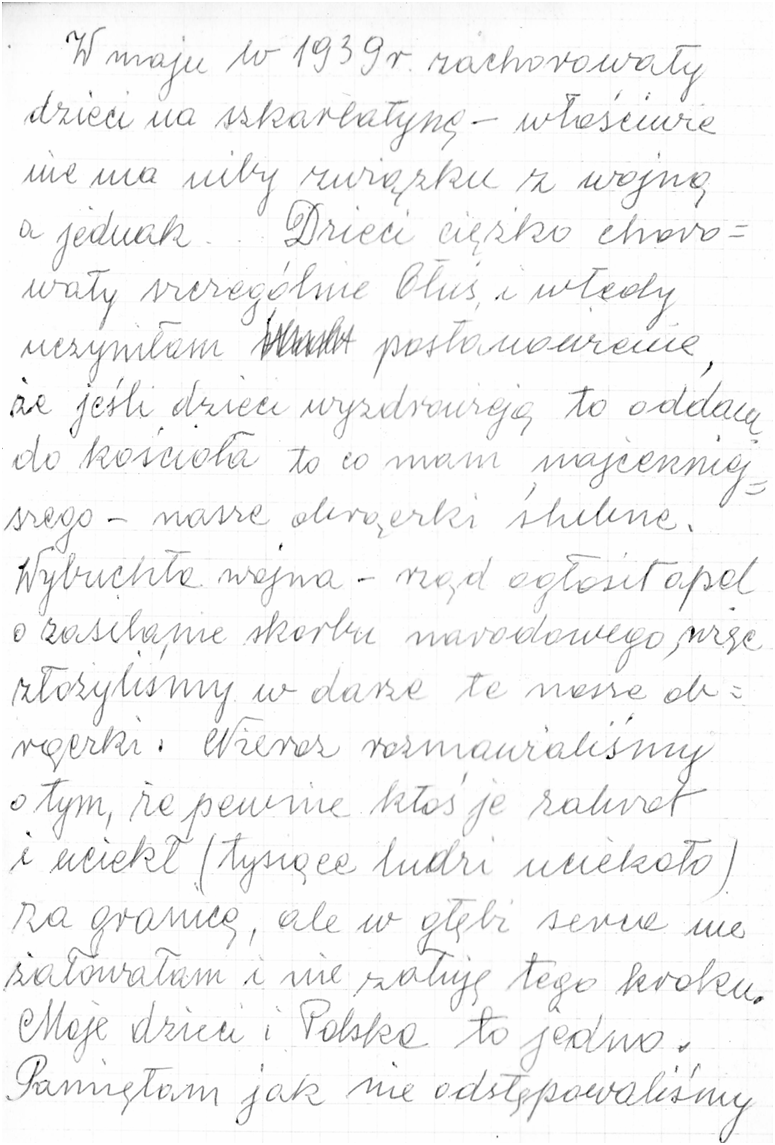 W maju w 1939 r. zachorowały
dzieci na szkarlatynę – właściwie
nie ma niby związku z wojną
a jednak... Dzieci ciężko choro=
wały szczególnie Oluś, i wtedy
uczyniłam postanowienie,
że jeśli dzieci wyzdrowieją to oddam
do kościoła to co mam najcenniej=
szego – nasze obrączki ślubne.
Wybuchła wojna – rząd ogłosił apel
o zasilanie skarbu narodowego, więc
złożyliśmy w darze te nasze ob=
rączki. Nieraz rozmawialiśmy
o tym, że pewnie ktoś je zabrał
i uciekł (tysiące ludzi uciekało)
za granicę, ale w głębi serca nie
żałowałam i nie żałuję tego kroku.
Moje dzieci i Polska to jedno.
Pamiętam jak nie odstępowaliśmy